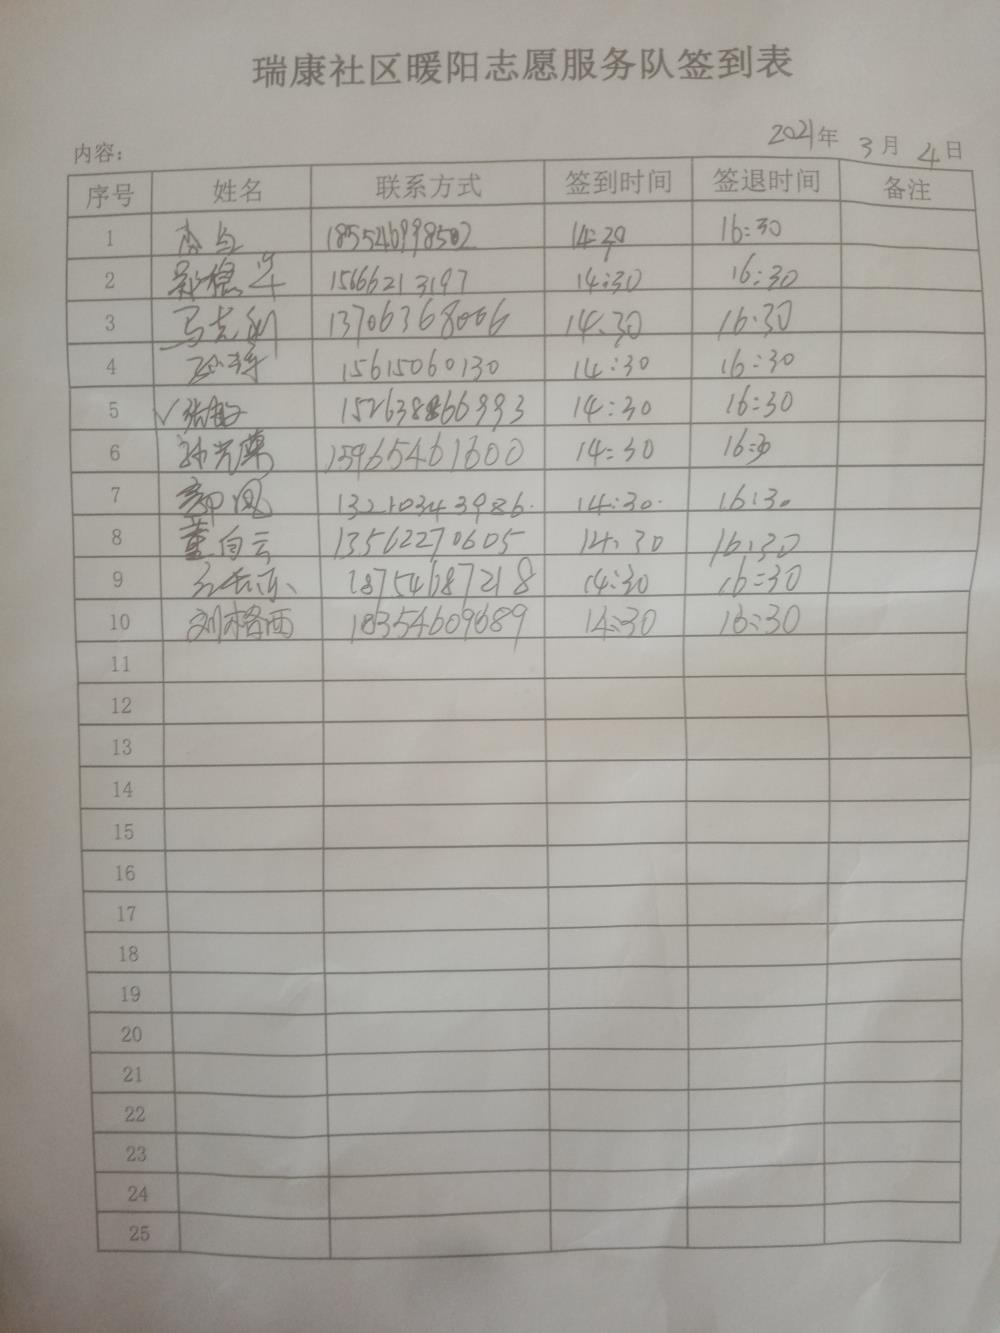 瑞康社区暖阳志愿服务队签到表
内容： 2021年 3月 4日
序号 姓名 联系方式 签到时间 签退时间 备注
1 14:30 16:30
2 15666213197 14:30 16:30
3 马志刚 13706368006 14:30 16:30
4 15615060130 14:30 16:30
5 √张敏 14:30 16:30
6 孙光荣 15965461600 14:30 16:30
7 郭凤 13210343986. 14:30. 16:30
8 董白云 13562270605 14:30 16:30
9 18754687218 14:30 16:30
10 刘格西 18354609689 14:30 16:30
11
12
13
14
15
16
17
18
19
20
21
22
23
24
25